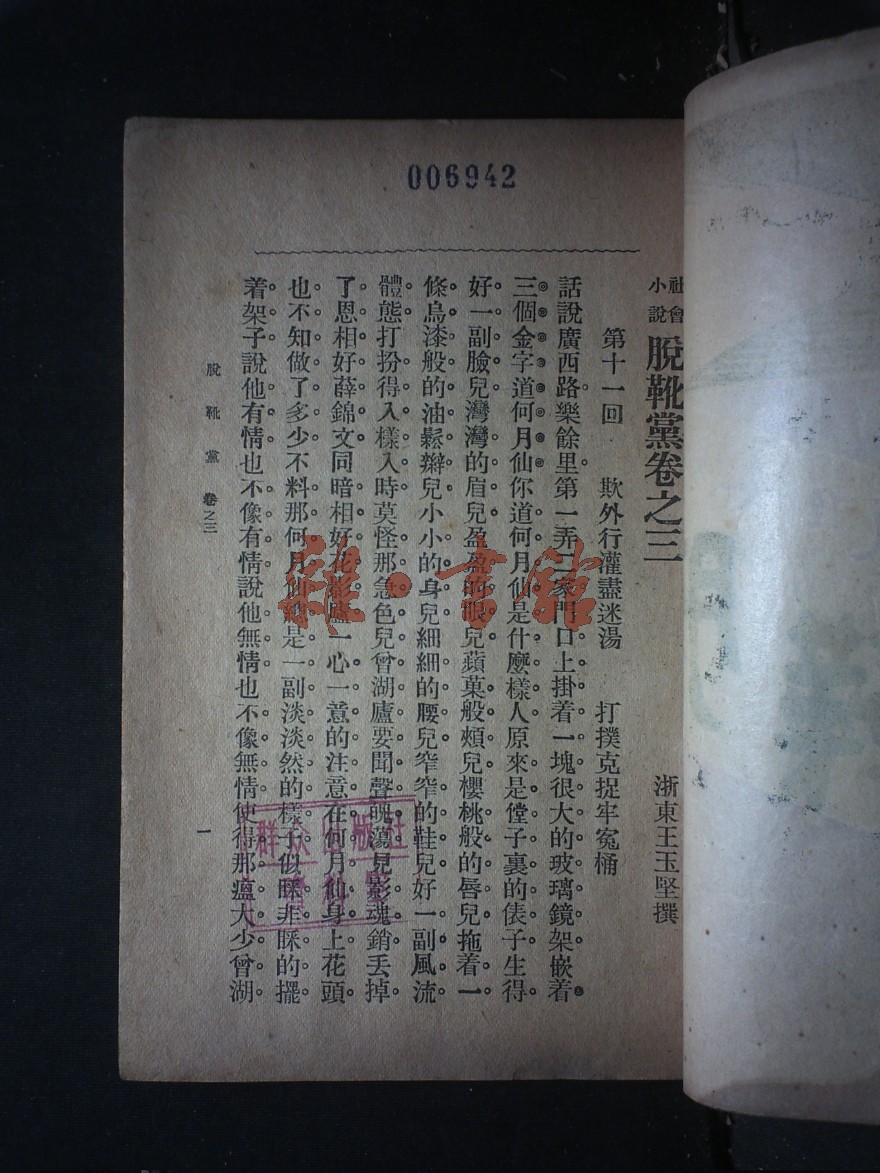 006942
社會小說 脫靴黨卷之三
浙東王玉堅撰
第十一回 欺外行灌盡迷湯 打撲克捉牢冤桶
話說廣西路樂餘里第一弄三家門口上掛着一塊很大的玻璃鏡架嵌着
三個金字道何月仙你道何月仙是什麼樣人原來是堂子裏的俵子生得
好一副臉兒灣灣的眉兒盈盈的眼兒蘋菓般頰兒櫻桃般的唇兒拖着一
條烏漆般的油鬆辮兒小小的身兒細細的腰兒窄窄的鞋兒好一副風流
體態打扮得入樣入時莫怪那急色兒曾湖廬要聞聲魄蕩見影魂銷丟掉
了恩相好薛錦文同暗相好花影廬一心一意的注意在何月仙身上花頭
也不知做了多少不料那何月仙總是一副淡淡然的樣子似睬非睬的擺
着架子說他有情也不像有情說他無情也不像無情使得那瘟大少曾湖
脫靴黨 卷之三
一
雜·書館
群众出版社